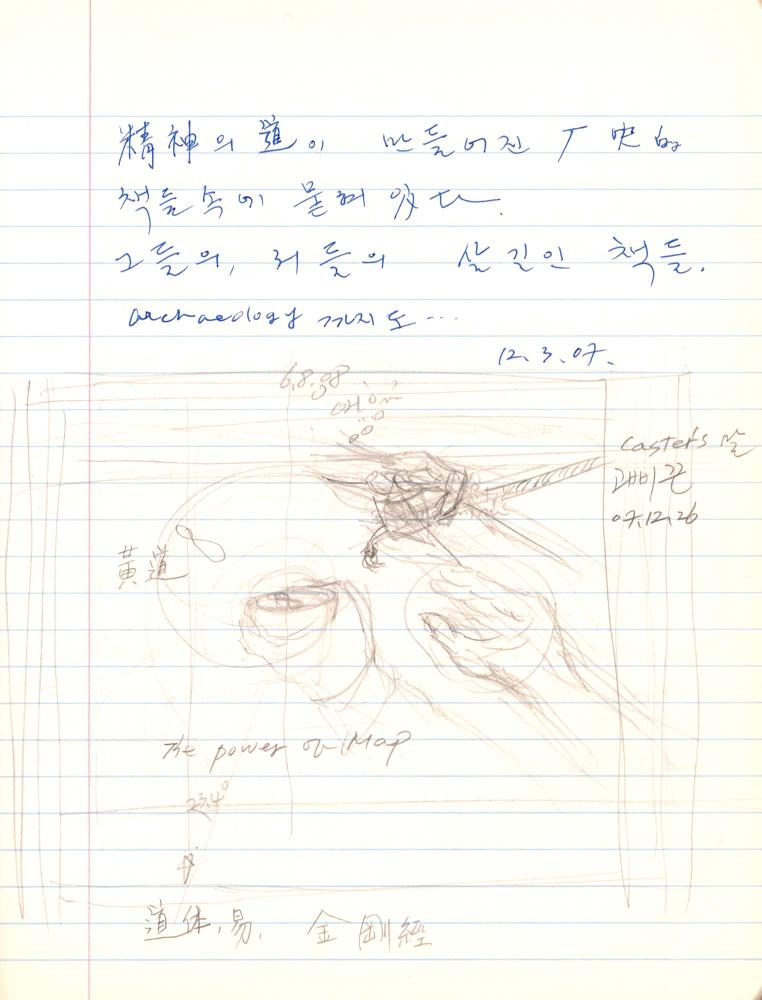 精神의 道이 만들어진 歷史的
책들속에 묻혀 있다.
그들의, 저들의 살길인 책들.
archaeology 까지도...
12.3.07.
6.8.98
Caster's 말
고삐끈
07.12.26
黃道
The power of Map
23.4°
道体,易. 金剛經